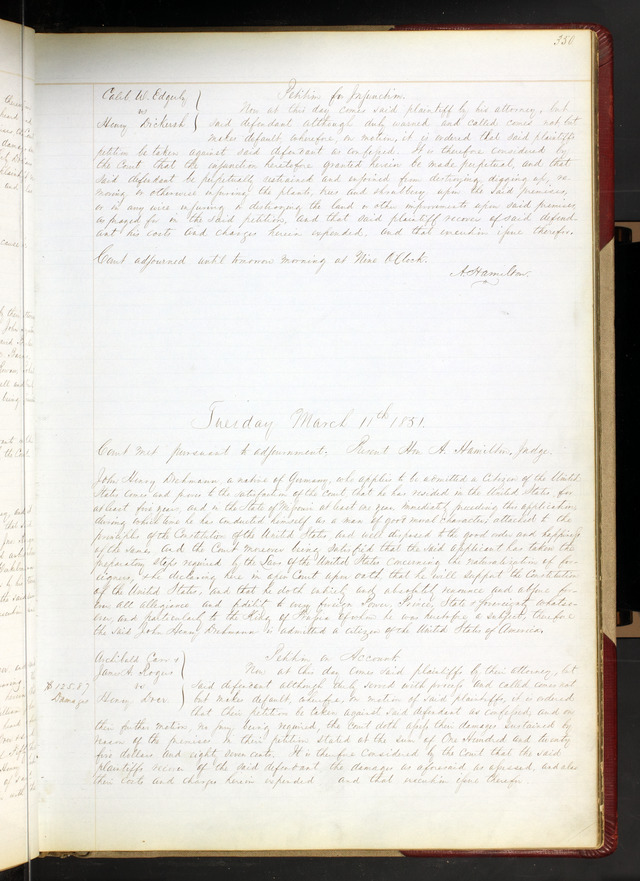 350
Calel W. Edgerly Petition for Injunction.
vs Now at this day comes said plaintiff by his attorney, but
Henry Dickersh said defendant although duly warned and called comes not but
makes default, wherefore on motion, it is ordered that said plaintiffs
petition be taken against said defendant as confessed. It is therefore considered by
the Court that the injunction heretofore granted herein be made perpetual, and that
said defendant be perpetually restrained and enjoined from destroying, digging up, re-
moving or otherwise injuring the plants, trees and shrubbery upon the said premises,
or in any wise injuring or destroying the land or other improvements upon said premises
as prayed for in the said petition, and that said plaintiff recover of said defend-
ant his costs and charges herein expended, and that execution issue therefor.
Court adjourned until tomorrow morning at Nine O'Clock.
A. Hamilton.
Tuesday March 11th 1851.
Court met pursuant to adjournment. Present Hon A. Hamilton, Judge.
John Henry a native of Germany, who applies to be admitted a Citizen of the United
States comes and proves to the satisfaction of the Court that he has resided in the United States for
at least five years, and in the State of Missouri at least one year immediately preceding this application,
during which time he has conducted himself as a man of good moral character, attached to the
principles of the Constitution of the United States and well disposed to the good order and happiness
of the same. And the Court moreover being satisfied that the said applicant has taken the
preparatory steps required by the Laws of the United States concerning the naturalization of for-
eigners, he declaring here in open Court upon oath, that he will support the Constitution
of the United States, and that he doth entirely and absolutely renounce and abjure for-
ever all allegiance and fidelity to every foreign Power, Prince, State & Sovereignty whatso-
ever, and particularly to the King of Prussia of whom he was heretofore a subject, therefore
the said John Henry is admitted a citizen of the United States of America.
Archibald Carr & Petition on Account.
James A. Rogers Now at this day comes said plaintiffs by their attorney, but
$125.87 vs said defendant although duly served with process and called comes not
Damages Henry but makes default, wherefore, on motion of said plaintiffs, it is ordered
that their petition be taken against said defendant as confessed, and on
their further motion, no jury being required, the Court doth assess their damages sustained by
reason of the premises in their petition stated at the sum of One Hundred and twenty
five dollars and eighty seven cents. It is therefore considered by the Court that the said
plaintiffs recover of the said defendant, the damages as aforesaid as assessed, and also
their costs and charges herein expended and that execution issue therefor.